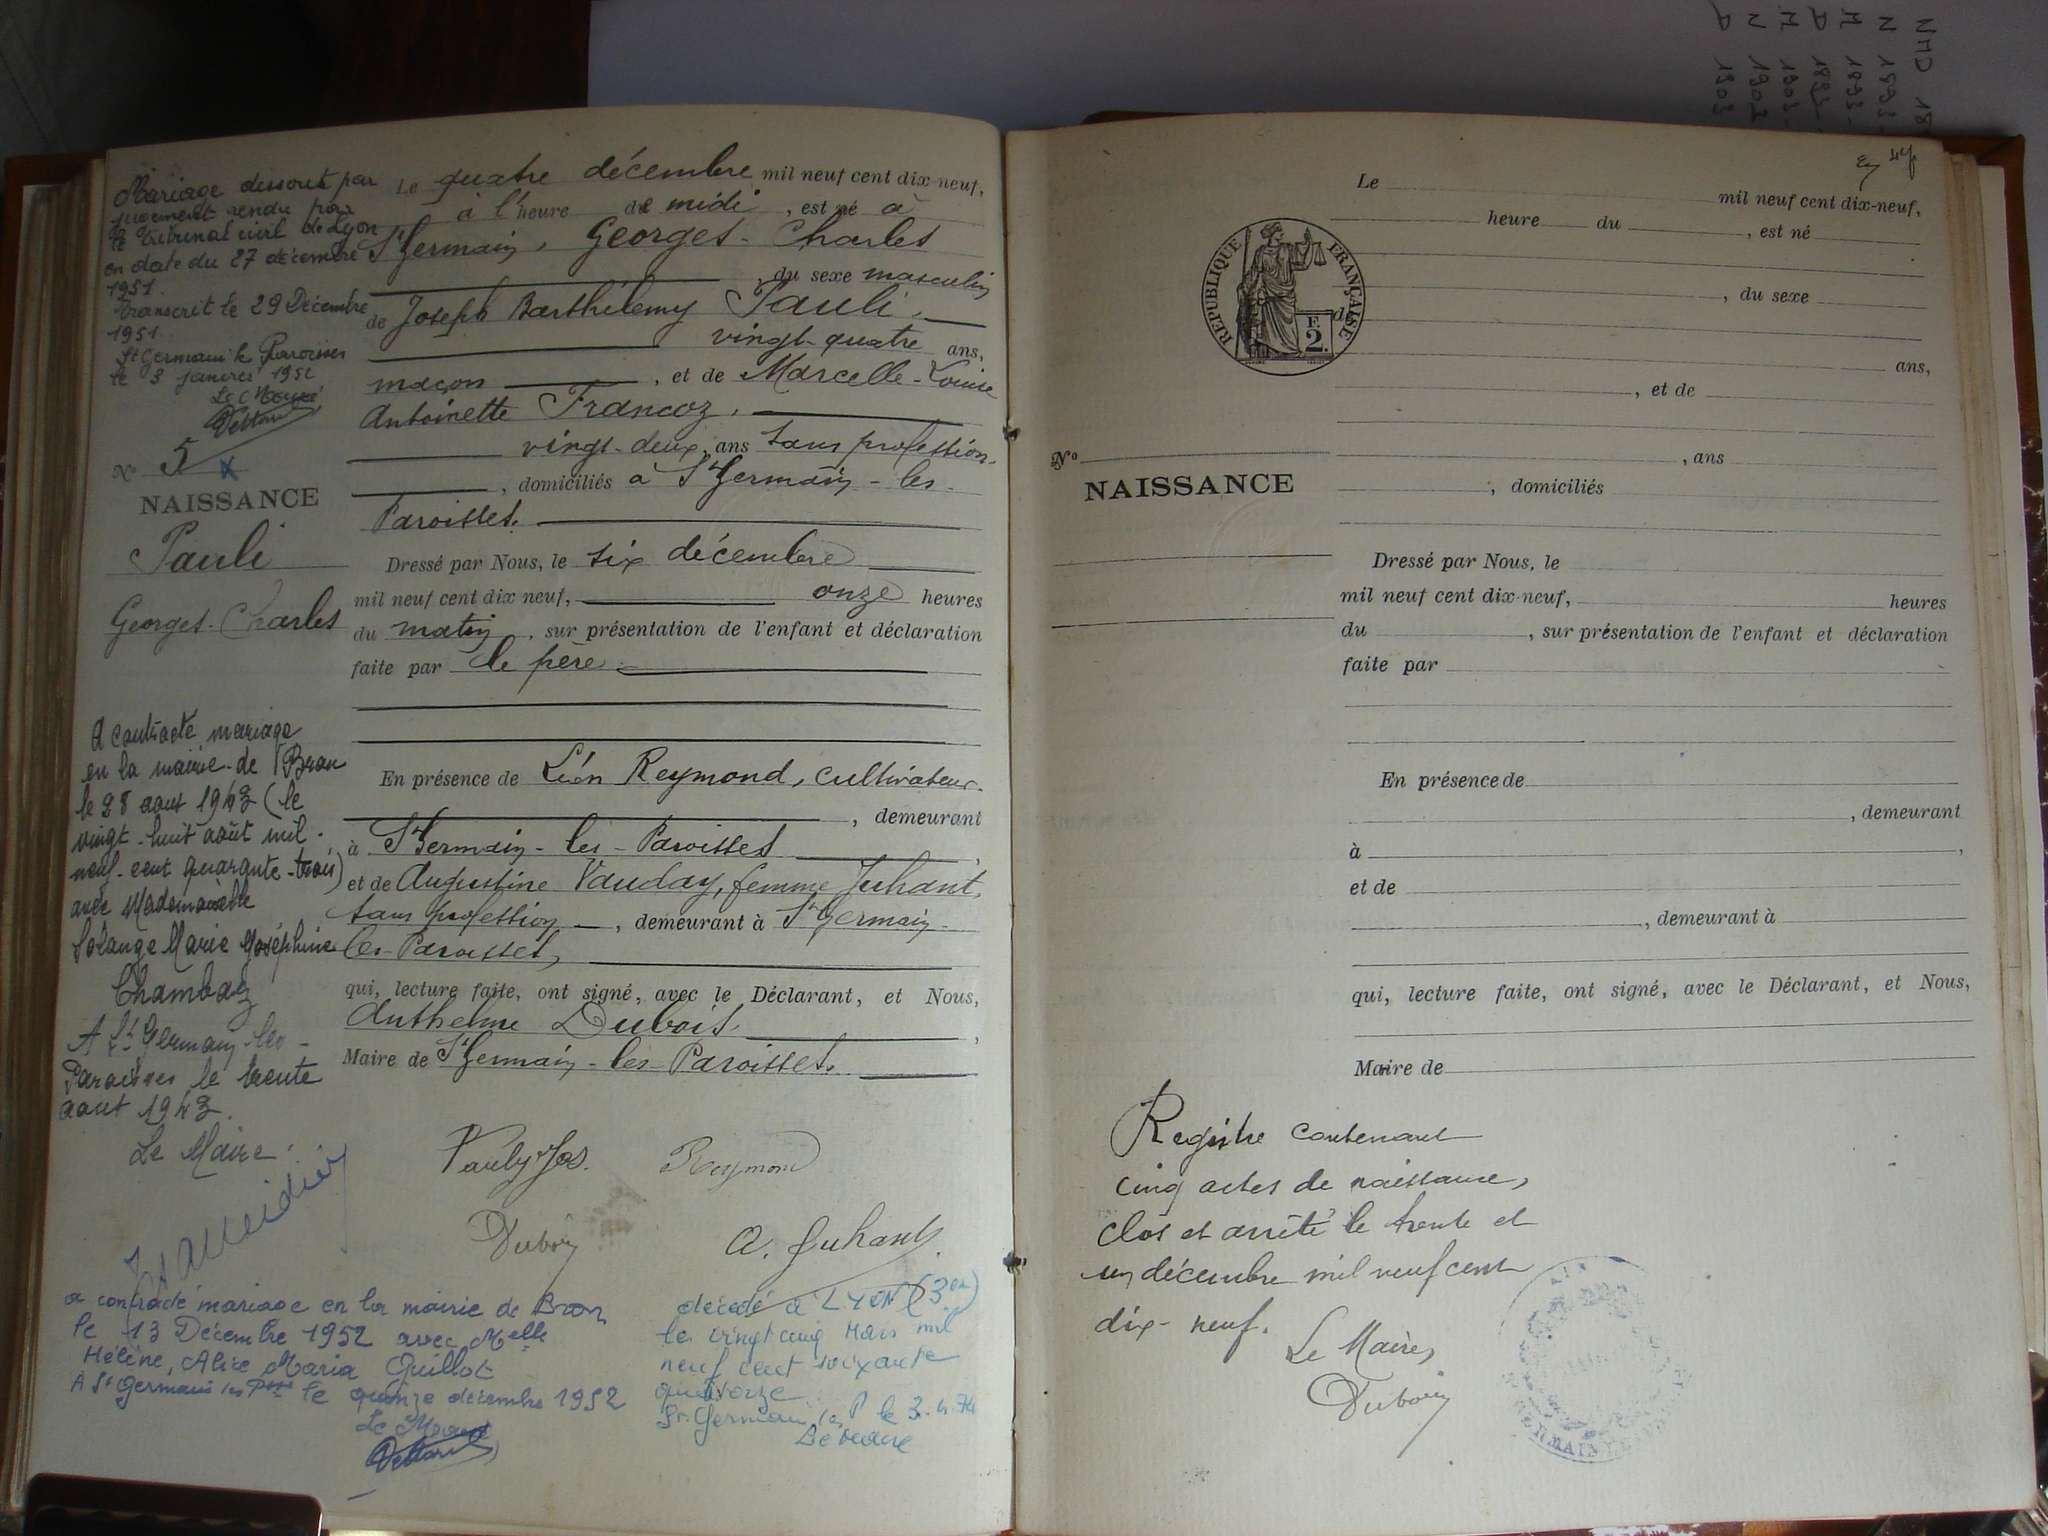 Mariage dissout par
jugement rendu par
le tribunal civil de Lyon
en date du 27 décembre
1951.
transcrit le 29 Décembre
1951.
St Germain le Paroisses
le 3 janvier 1952
Le Maire
N° 5
NAISSANCE
Pauli
Georges-Charles
A contracté mariage
en la mairie de Bron
le 28 aout 1943 (le
vingt-huit août mil
neuf-cent quarante-trois)
avec Mademoiselle
Solange Marie Joséphine
Chambaz
A St Germain les-
Paroisses le trente
aout 1943.
Le Maire.
Le quatre décembre mil neuf cent dix-neuf,
à l'heure de midi, est né à
St Germain, Georges-Charles
, du sexe masculin
de Joseph Barthélemy Pauli,
vingt-quatre ans,
maçon, et de Marcelle-Louise
Antoinette Francoz,
vingt-deux ans sans profession
, domiciliés à St Germain-les-
Paroisses.
Dressé par Nous, le six décembre
mil neuf cent dix neuf, onze heures
du matin, sur présentation de l'enfant et déclaration
faite par le père
En présence de Léon Reymond, cultivateur
, demeurant
à St Germain-les-Paroisses,
et de Augustine Vauday, femme Juhant,
sans profession, demeurant à St Germain-
les-Paroisses,
qui, lecture faite, ont signé, avec le Déclarant, et Nous,
Anthelme Dubois,
Maire de St Germain-les-Paroisses.
Pauly Jos. Reymond
Dubois A. Juhant
a contracté mariage en la mairie de Bron
le 13 Décembre 1952 avec Melle
Hélène, Alice Maria Guillot
A St Germain les Psses le quinze décembre 1952
Le Maire
décédé à LYON (3em)
le vingt cinq Mars mil
neuf cent soixante
quatorze
St Germain les P le 3.4.74
Le Maire
NMD 18
N 1893-
M 1893-
D 1893-
M 1903-
N 1902
D 1903
RÉPUBLIQUE FRANÇAISE
F.
2.
Le mil neuf cent dix-neuf,
heure du , est né
, du sexe
de
ans,
, et de
N°
, ans
NAISSANCE
, domiciliés
Dressé par Nous, le
mil neuf cent dix-neuf, heures
du , sur présentation de l'enfant et déclaration
faite par
En présence de
, demeurant
à ,
et de
, demeurant à
qui, lecture faite, ont signé, avec le Déclarant, et Nous,
,
Maire de
Registre contenant
cinq actes de naissance,
clos et arrêté le trente et
un décembre mil neuf cent
dix-neuf.
Le Maire,
Dubois